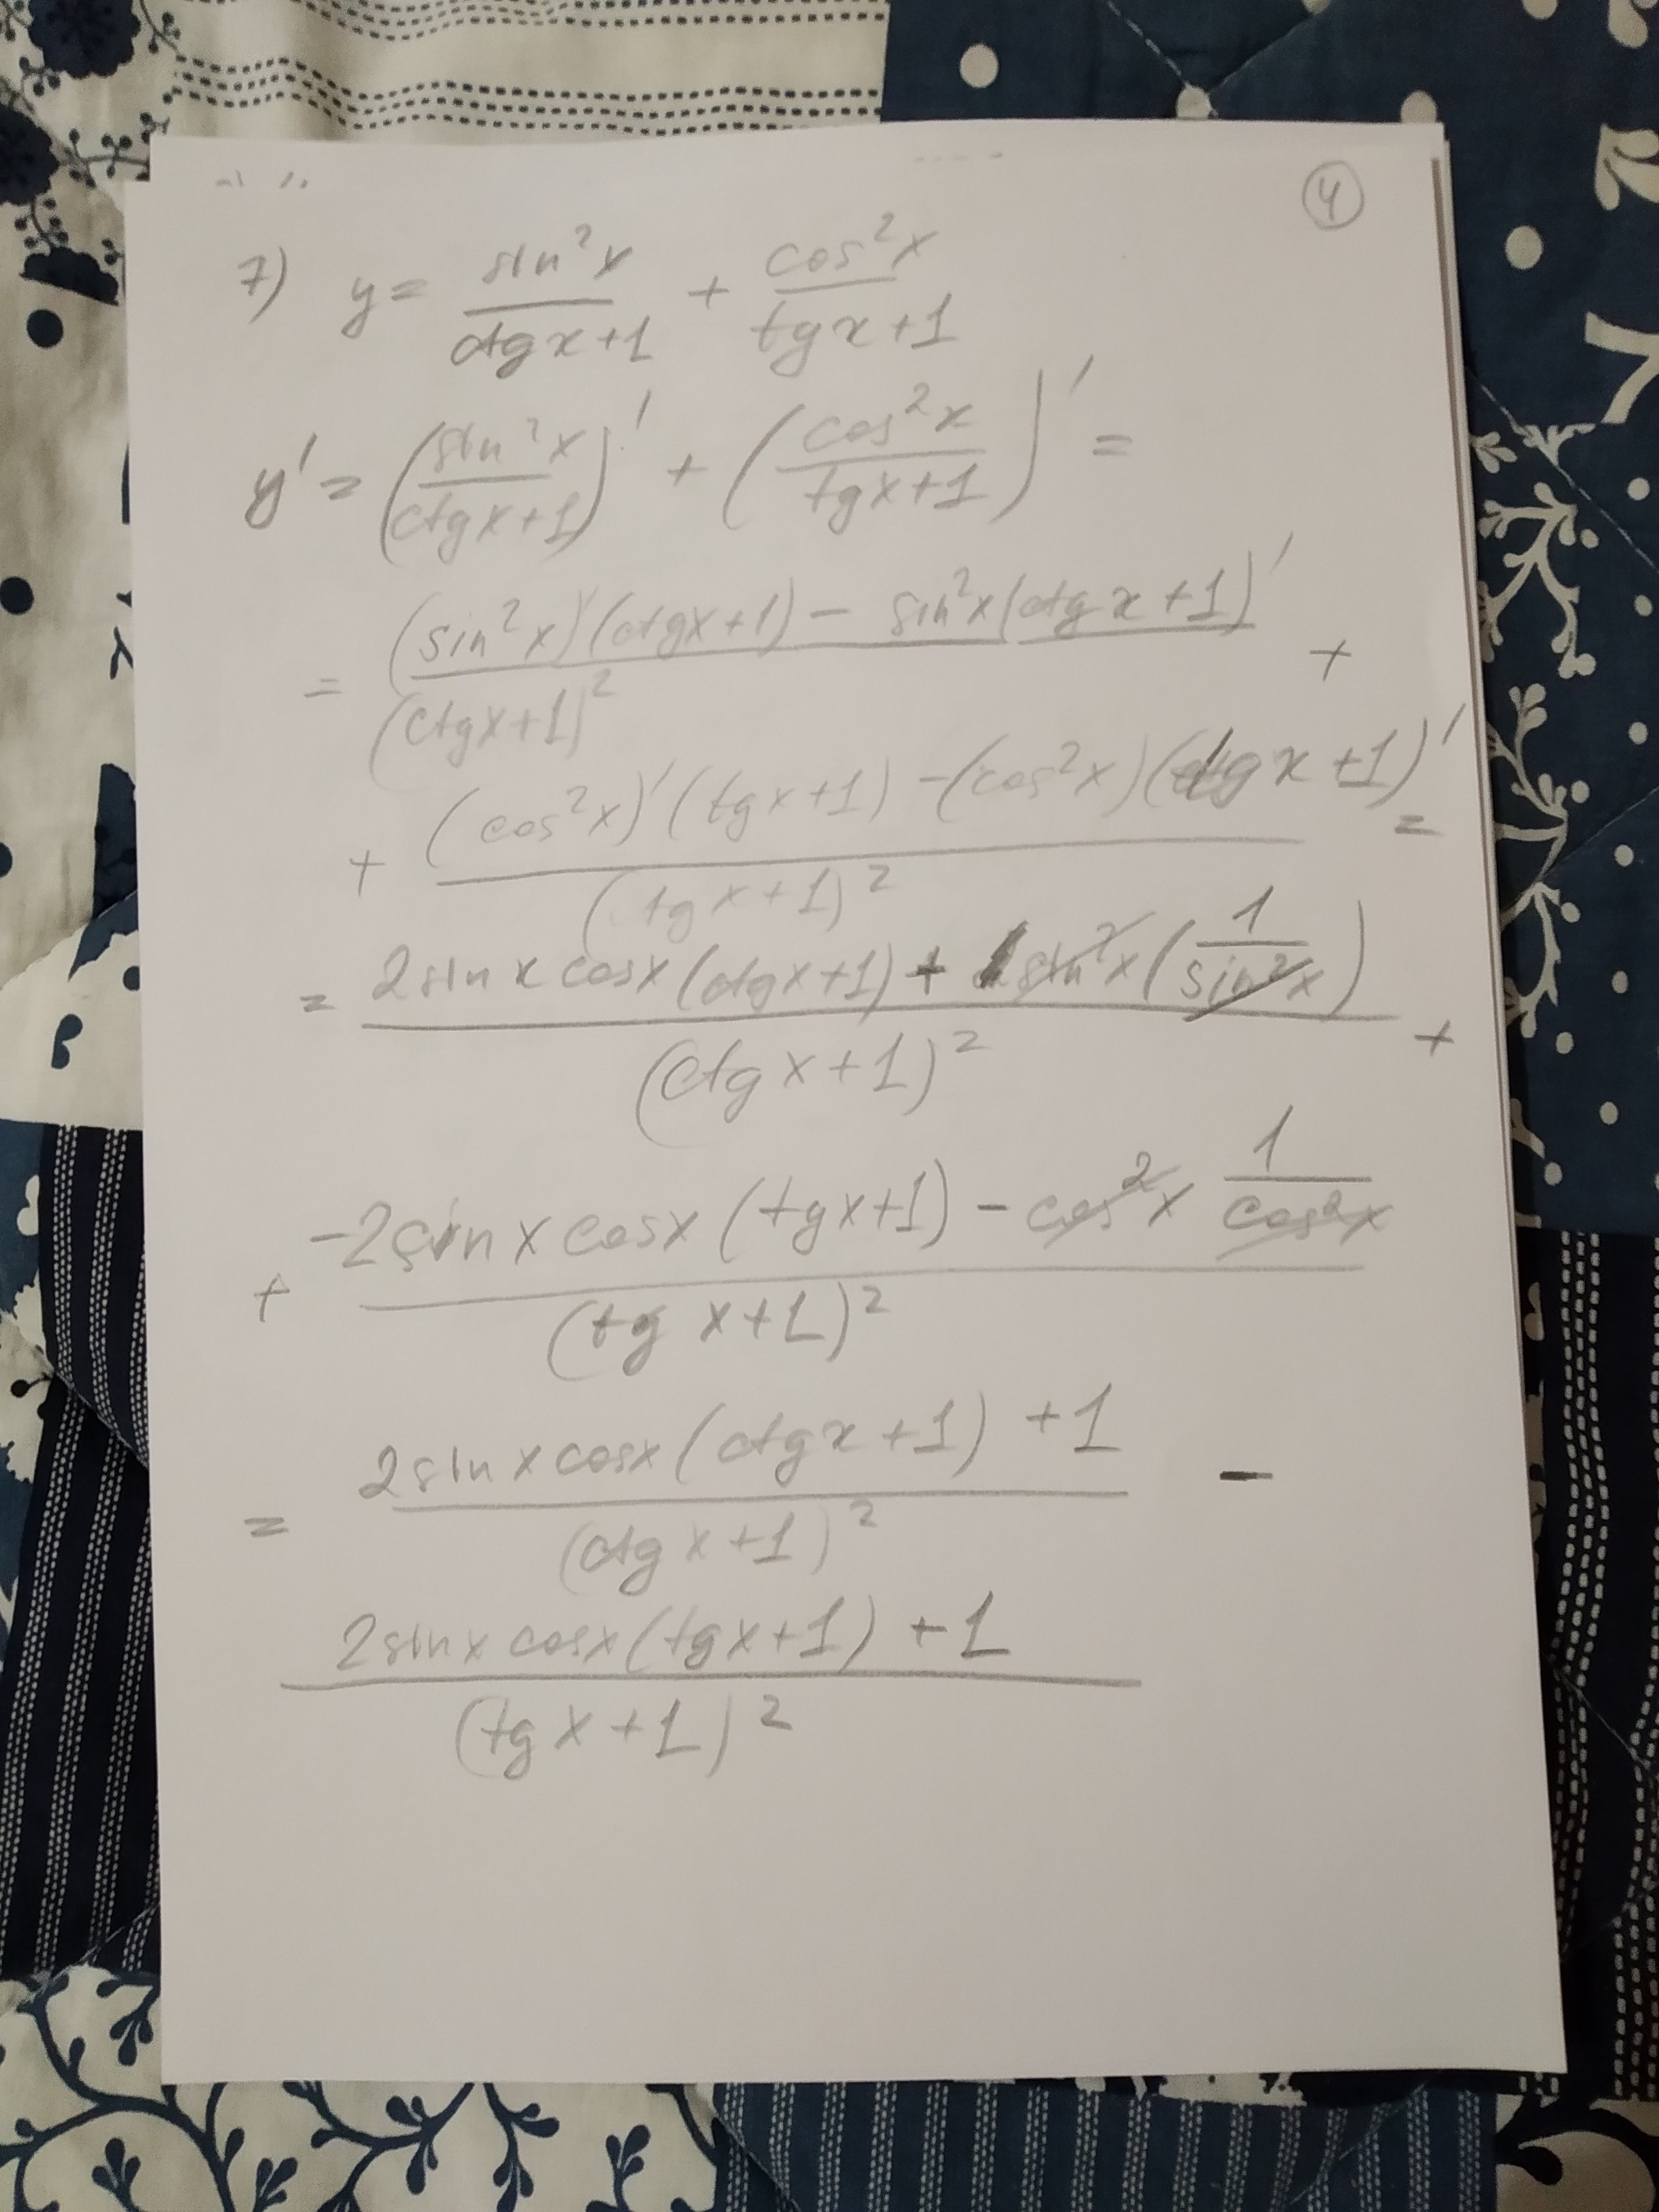 4
7) y = sin²x / ctgx+1 + cos²x / tgx+1
y' = (sin²x / ctgx+1)' + (cos²x / tgx+1)' =
= (sin²x)'(ctgx+1) - sin²x(ctgx+1)' / (ctgx+1)² +
+ (cos²x)'(tgx+1) - (cos²x)(tgx+1)' / (tgx+1)² =
= 2sinx cosx(ctgx+1) + sin²x(1/sin²x) / (ctgx+1)² +
+ -2sinx cosx(tgx+1) - cos²x 1/cos²x / (tgx+1)²
= 2sinx cosx(ctgx+1) +1 / (ctgx+1)² -
2sinx cosx(tgx+1) +1 / (tgx+1)²